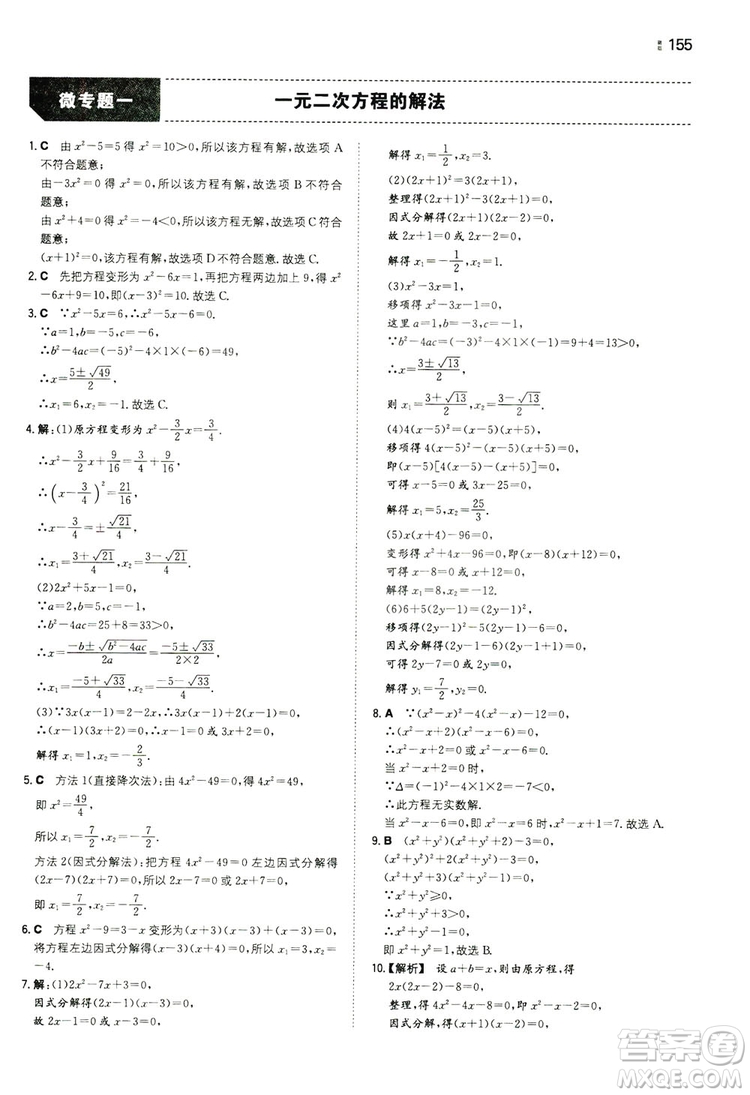 155
微专题一
一元二次方程的解法
1. C 由 x²-5=5 得 x²=10>0,所以该方程有解,故选项 A
不符合题意;
由-3x²=0 得 x²=0,所以该方程有解,故选项 B 不符合
题意;
由 x²+4=0 得 x²=-4<0,所以该方程无解,故选项 C 符合
题意;
(x+1)²=0,所以该方程有解,故选项 D 不符合题意.故选 C.
2. C 先把方程变形为 x²-6x=-9,再把方程两边加上 9,得 x²
-6x+9=0,即(x-3)²=0.故选 C.
3. C ∵x²-5x=6,∴x²-5x-6=0.
∵a=1,b=-5,c=-6,
∴b²-4ac=(-5)²-4×1×(-6)=49,
∴x=(5±√49)/2,
∴x₁=6,x₂=-1.故选 C.
4. 解:(1)原方程变形为 x²-3/2 x=3/4,
∴x²-3/2 x+9/16=3/4+9/16,
∴(x-3/4)²=21/16,
∴x-3/4=±√21/4,
∴x₁=(3+√21)/4,x₂=(3-√21)/4.
(2)2x²+5x-1=0,
∵a=2,b=5,c=-1,
∴b²-4ac=25+8=33>0,
∴x=(-b±√(b²-4ac))/2a=(-5±√33)/(2×2),
∴x₁=(-5+√33)/4,x₂=(-5-√33)/4.
(3)∵3x(x-1)=2-2x,∴3x(x-1)+2(x-1)=0,
∴(x-1)(3x+2)=0,∴x-1=0 或 3x+2=0,
解得 x₁=1,x₂=-2/3.
5. C 方法 1(直接降次法):由 4x²-49=0,得 4x²=49,
即 x²=49/4,
所以 x₁=7/2,x₂=-7/2.
方法 2(因式分解法):把方程 4x²-49=0 左边因式分解得
(2x-7)(2x+7)=0,所以 2x-7=0 或 2x+7=0,
即 x₁=7/2,x₂=-7/2.故选 C.
6. C 方程 x²-9=3-x 变形为(x+3)(x-3)+(x-3)=0,
将方程左边因式分解得(x-3)(x+4)=0,所以 x₁=3,x₂=
-4.
7. 解:(1)2x²-7x+3=0,
因式分解得(2x-1)(x-3)=0,
故 2x-1=0 或 x-3=0,
解得 x₁=1/2,x₂=3.
(2)(2x+1)²=3(2x+1),
整理得(2x+1)²-3(2x+1)=0,
因式分解得(2x+1)(2x-2)=0,
故 2x+1=0 或 2x-2=0,
解得 x₁=-1/2,x₂=1.
(3)x²-3x=1,
移项得 x²-3x-1=0,
这里 a=1,b=-3,c=-1,
∵b²-4ac=(-3)²-4×1×(-1)=13>0,
∴x=(3±√13)/2,
则 x₁=(3+√13)/2,x₂=(3-√13)/2.
(4)4(x-5)²=(x-5),
移项得 4(x-5)²-(x-5)=0,
即(x-5)[4(x-5)-(x+5)]=0,
可得 x-5=0 或 3x-25=0,
解得 x₁=5,x₂=25/3.
(5)x(x+4)-96=0,
变形得 x²+4x-96=0,即(x-8)(x+12)=0,
可得 x-8=0 或 x+12=0,
解得 x₁=8,x₂=-12.
(6)6+5(2y-1)=(2y-1)²,
移项得(2y-1)²-5(2y-1)-6=0,
因式分解得(2y-1-6)(2y-1+1)=0,
可得 2y-7=0 或 2y=0,
解得 y₁=7/2,y₂=0.
8. A ∵(x²-x)²-4(x²-x)-12=0,
∴(x²-x+2)(x²-x-6)=0,
∴x²-x+2=0 或 x²-x-6=0.
当 x²-x+2=0 时,x²-x=-2,
∵Δ=(-1)²-4×1×2=-7<0,
∴此方程无实数解.
当 x²-x-6=0,即 x²-x=6 时,x²-x+1=7.故选 A.
9. B (x²+y²)(x²+y²+2)-3=0,
(x²+y²)²+2(x²+y²)-3=0,
(x²+y²+3)(x²+y²-1)=0,
∵x²+y²≥0,
∴x²+y²+3>0,
∴x²+y²-1=0,
即 x²+y²=1.故选 B.
10.【解析】 设 a+b=x,则由原方程,得
2x(2x-2)-8=0,
整理,得 4x²-4x-8=0,即 x²-x-2=0,
因式分解得(x+1)(x-2)=0,
答案圈